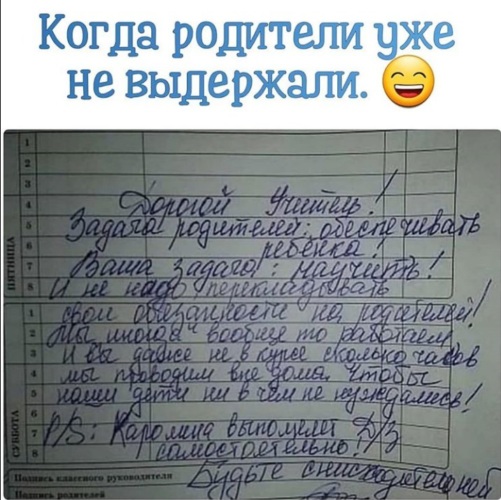 Когда родители уже
не выдержали. 😄
1
2
3
4
5
6
7
8
ПЯТНИЦА
Дорогой Учитель!
Задача родителей: обеспечивать
ребёнка!
Ваша задача: научить!
И не надо перекладывать
1
2
3
4
5
6
7
8
СУББОТА
свои обязанности на родителей!
Мы иногда вообще то работаем
И вы даже не в курсе сколько часов
мы проводим вне дома. Чтобы
наши дети ни в чём не нуждались!
P/S: Каролина выполняет Д/З
самостоятельно!
Будьте снисходительней
Подпись классного руководителя
Подпись родителей